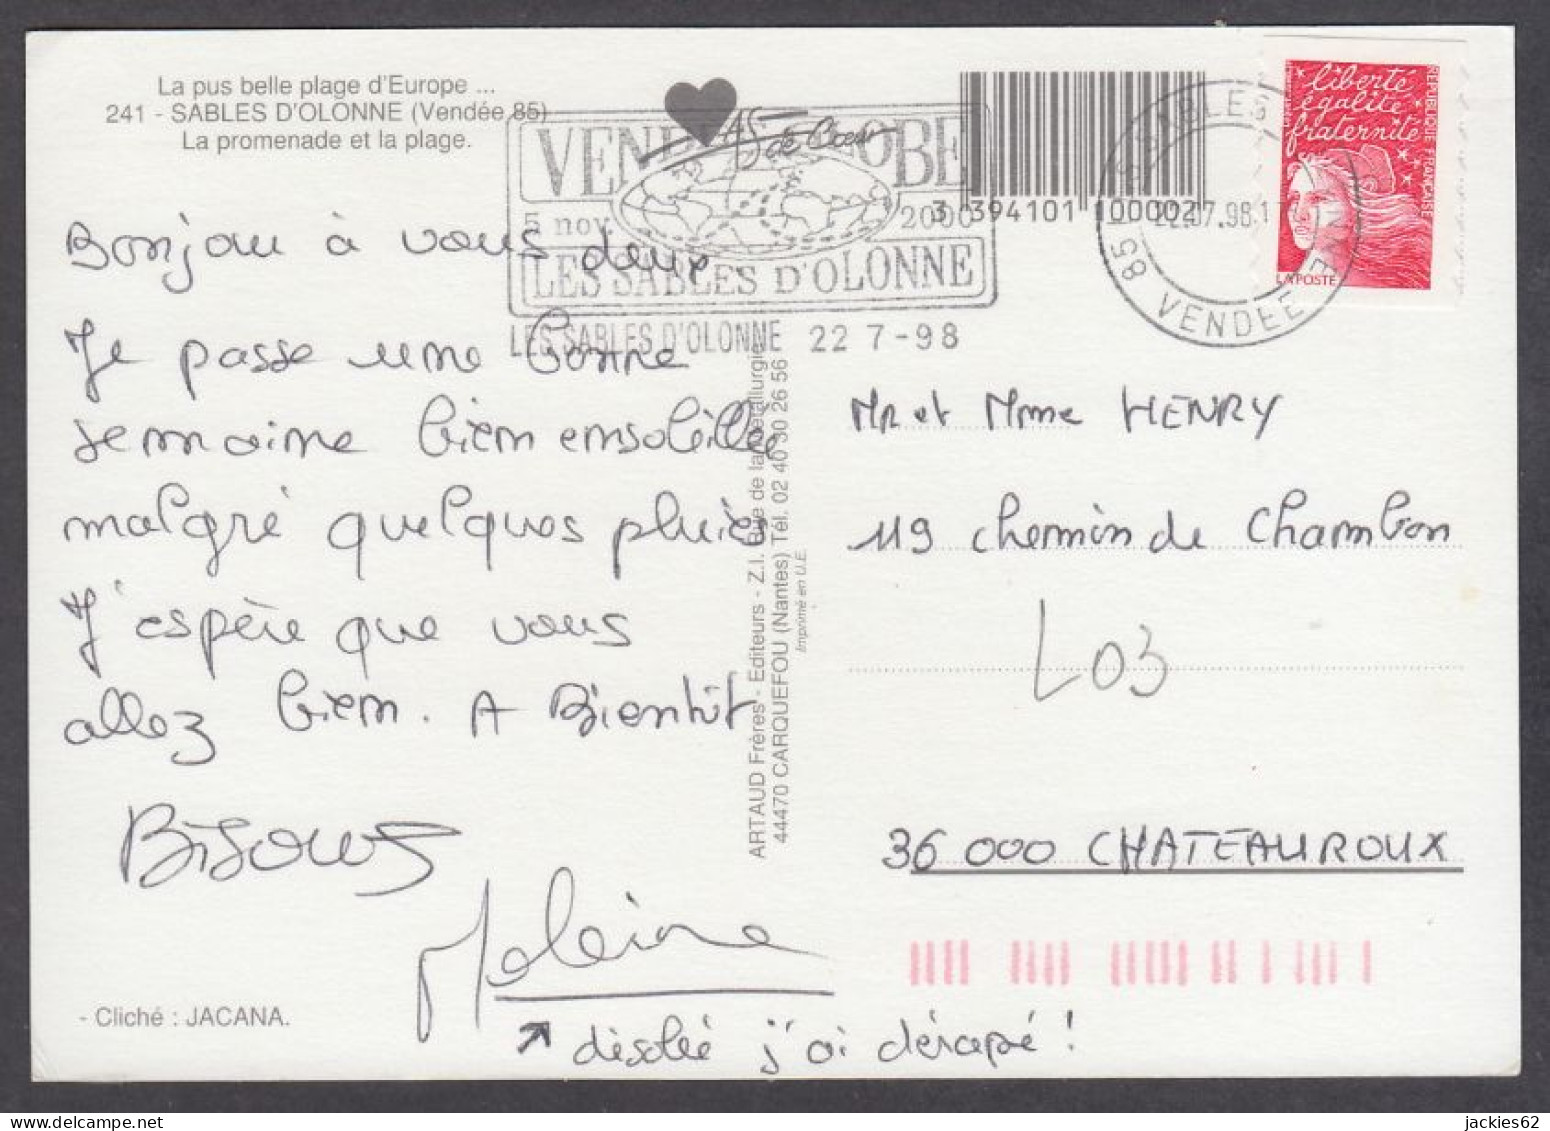 La pus belle plage d'Europe ...
241 - SABLES D'OLONNE (Vendée 85)
La promenade et la plage.
85 de Cœur
VENDEE GLOBE
5 nov. 2000
LES SABLES D'OLONNE
LES SABLES D'OLONNE 22 7-98
3 394101 100002
SABLES
22.07.98
85 VENDEE
liberté
égalité
fraternité
REPUBLIQUE FRANÇAISE
LA POSTE
Bonjou à vous deux
Je passe une bonne
semaine bien ensoleillée
malgré quelques pluies
J'espère que vous
allez bien. A Bientôt
Bisous
disolée j'ai dérapé !
- Cliché : JACANA.
ARTAUD Frères - Editeurs - Z.I. Rue de la Métallurgie
44470 CARQUEFOU (Nantes) Tél. 02 40 30 26 56
Imprimé en U.E.
Mr et Mme HENRY
119 chemin de Chambon
L03
36 000 CHATEAUROUX
jackies62